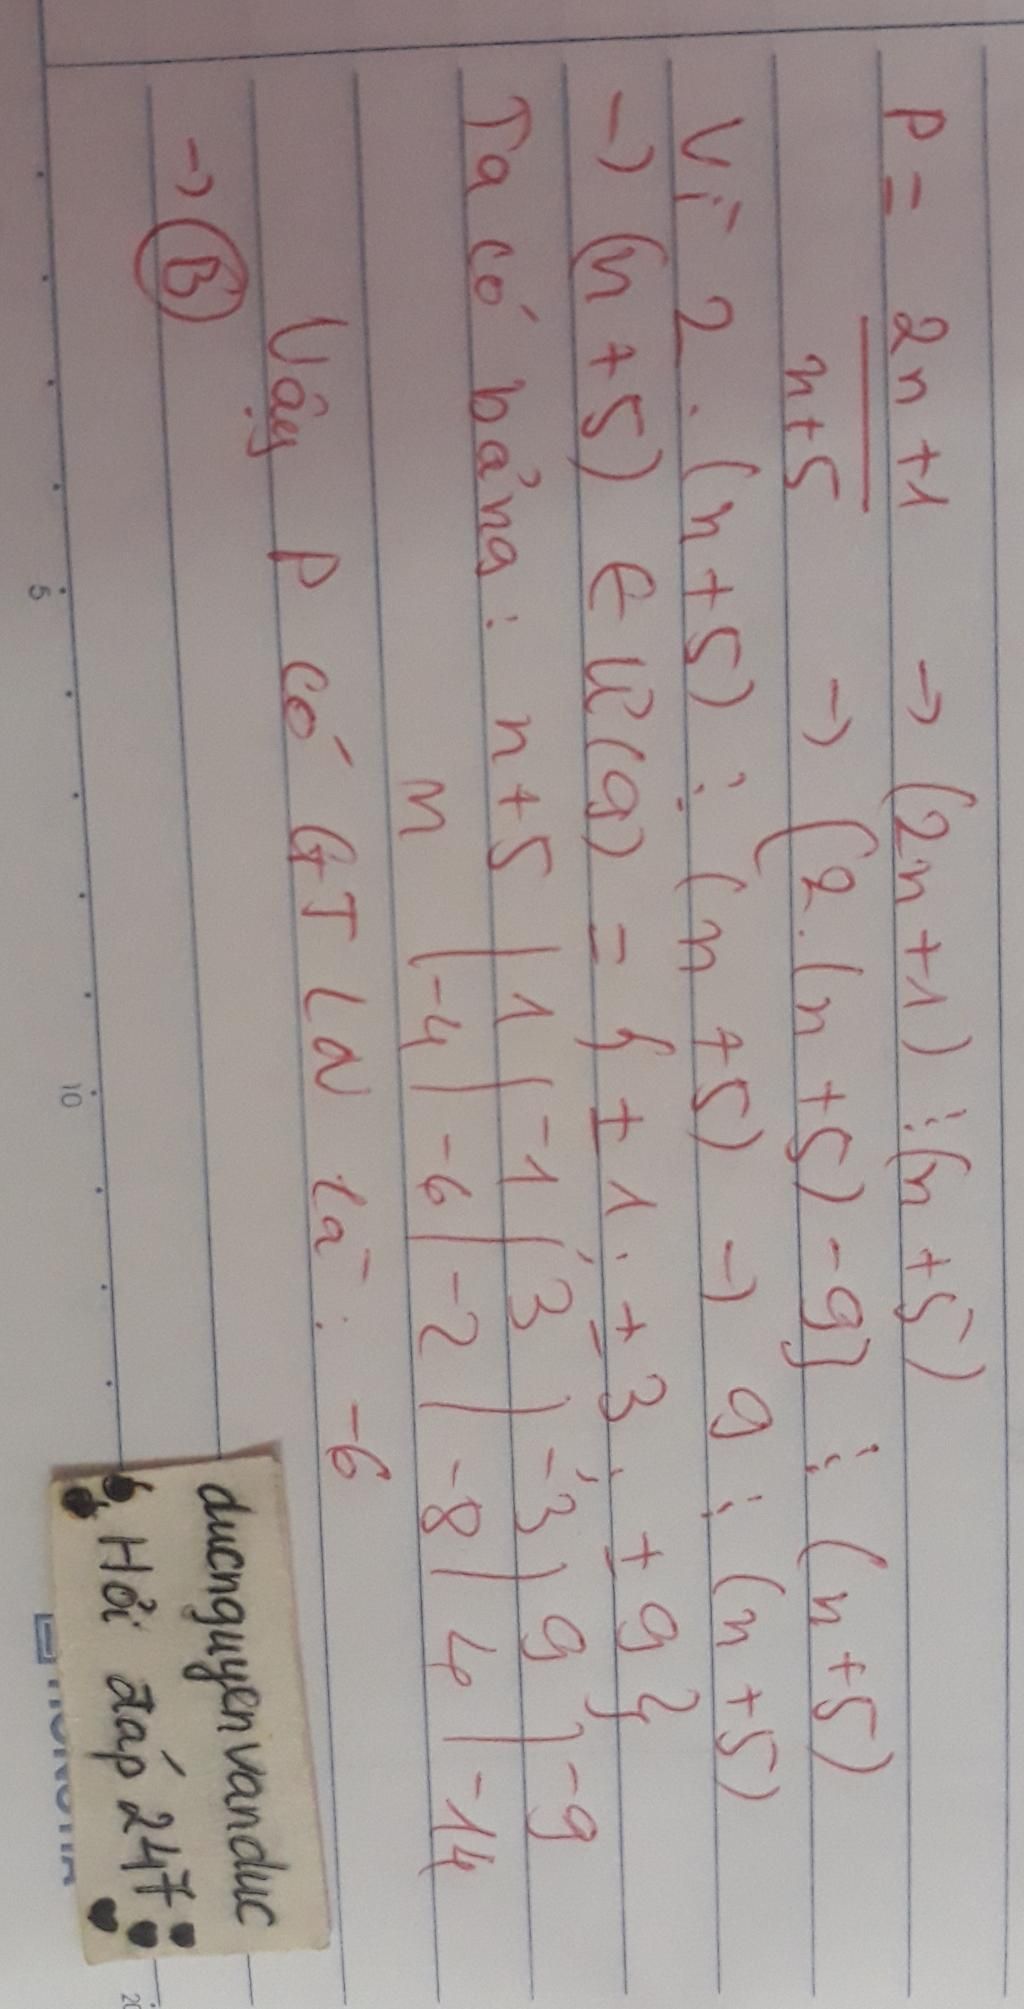 P = 2n+1 → (2n+1) ⋮ (n+5)
n+5 → (2.(n+5)-9) ⋮ (n+5)
Vì 2.(n+5) ⋮ (n+5) → 9 ⋮ (n+5)
→ (n+5) ∈ Ư(9) = {±1; ±3; ±9}
Ta có bảng: n+5 | 1 | -1 | 3 | -3 | 9 | -9
n | -4 | -6 | -2 | -8 | 4 | -14
Vậy P có GTLN là: -6
→ B
ducnguyenvanduc
Hỏi đáp 247
5
10
20